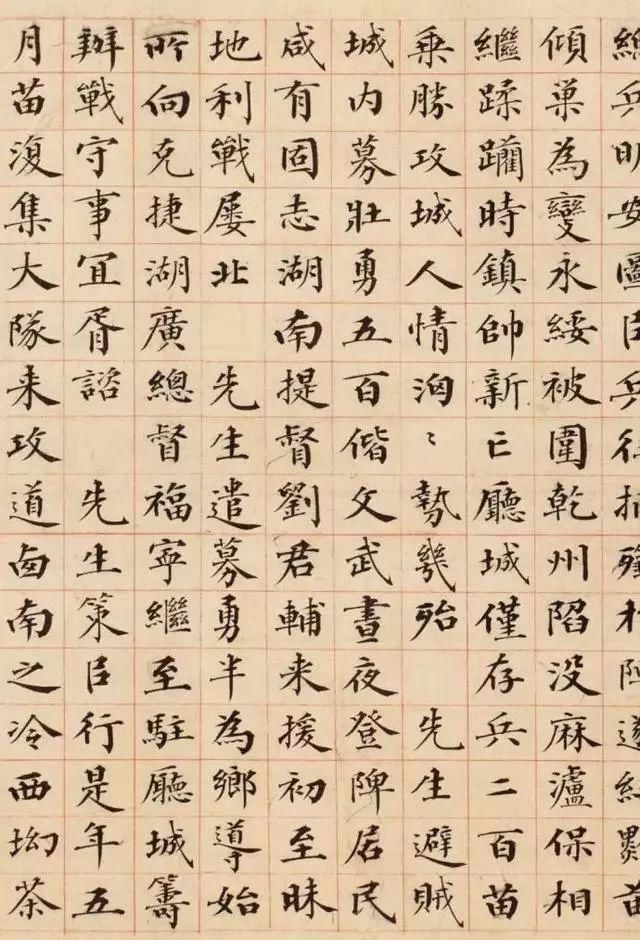 總兵明安圖㠯兵往捕
傾巢為變永綏被圍乾州陷没麻瀘保相
繼蹂躪時鎮帥新亡廳城僅存兵二百苗
乗勝攻城人情洶〻勢幾殆 先生避賊
城内募壯勇五百偕文武晝夜登陴居民
咸有固志湖南提督劉君輔来援初至昧
地利戰屡北 先生遣募勇半為鄉導始
所向克捷湖廣總督福寧繼至駐廳城籌
辦戰守事宜胥諮 先生策㠯行是年五
月苗復集大隊来攻道南之冷西坳茶